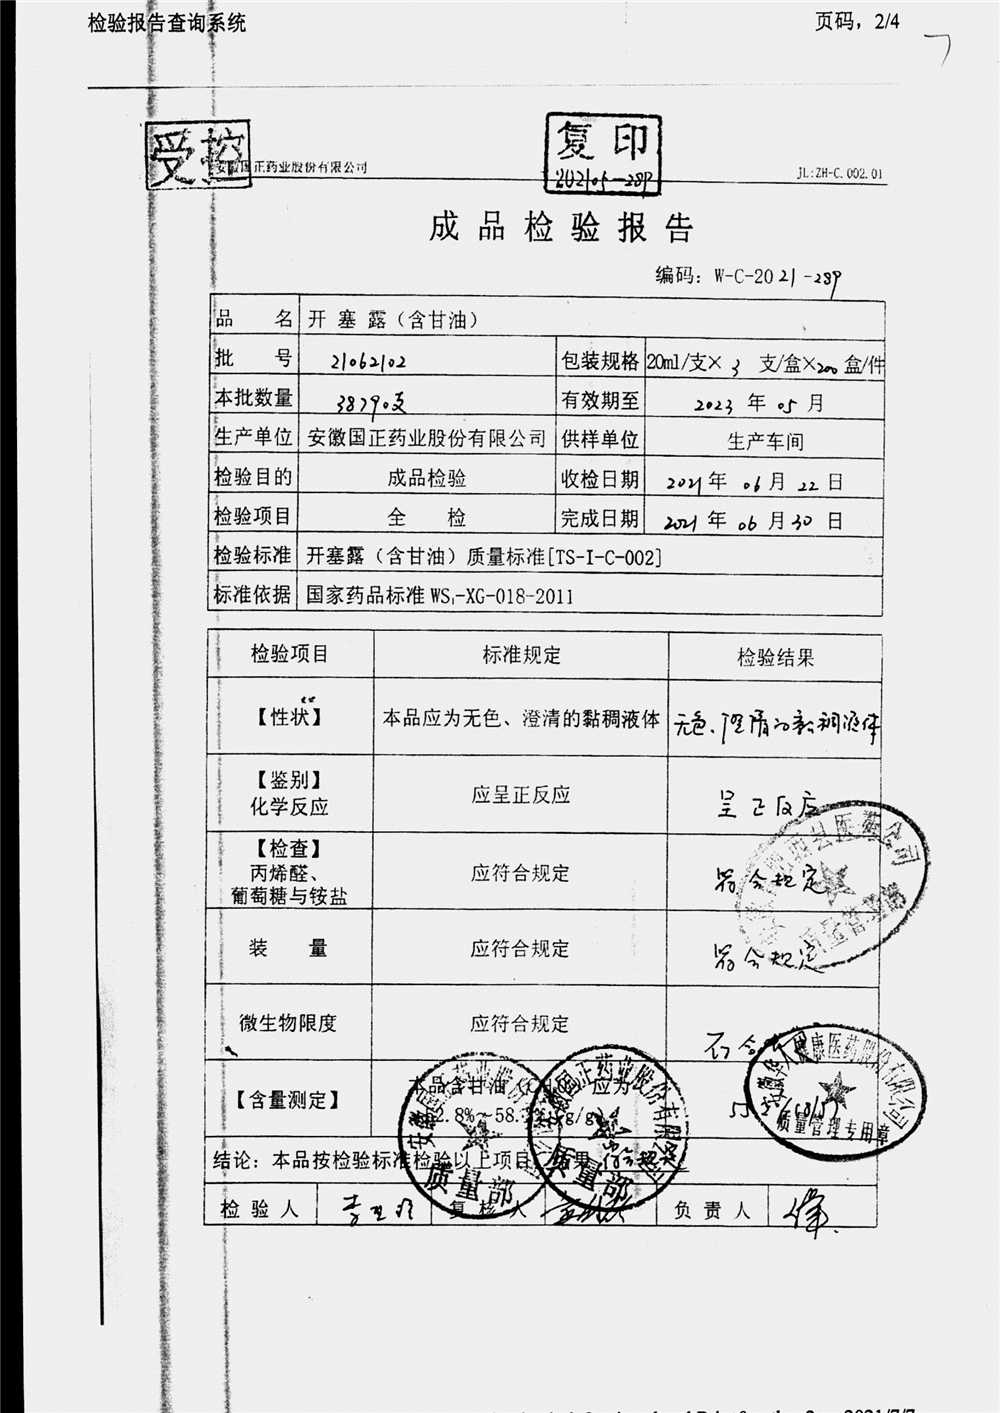 检验报告查询系统
页码，2/4
受控
安徽国正药业股份有限公司
复印
202105-289
JL:ZH-C.002.01
成品检验报告
编码：W-C-2021-289
品 名 开塞露（含甘油）
批 号 21062102 包装规格 20ml/支×3 支/盒×200盒/件
本批数量 38790支 有效期至 2023年05月
生产单位 安徽国正药业股份有限公司 供样单位 生产车间
检验目的 成品检验 收检日期 2021年06月22日
检验项目 全 检 完成日期 2021年06月30日
检验标准 开塞露（含甘油）质量标准[TS-I-C-002]
标准依据 国家药品标准WS₁-XG-018-2011
检验项目 标准规定 检验结果
【性状】 本品应为无色、澄清的黏稠液体 无色、澄清的黏稠液体
【鉴别】
化学反应 应呈正反应 呈正反应
【检查】
丙烯醛、
葡萄糖与铵盐 应符合规定 符合规定
装 量 应符合规定 符合规定
微生物限度 应符合规定 符合
【含量测定】 本品含甘油 应为
2.8%~58. (g/g)
结论：本品按检验标准检验以上项目 结果
检验人 复核人 负责人
医药公司
安徽华人健康医药股份有限公司
质量管理专用章
安徽国正药业股份有限公司
质量部
安徽国正药业股份有限公司
质量部
2021/7/7